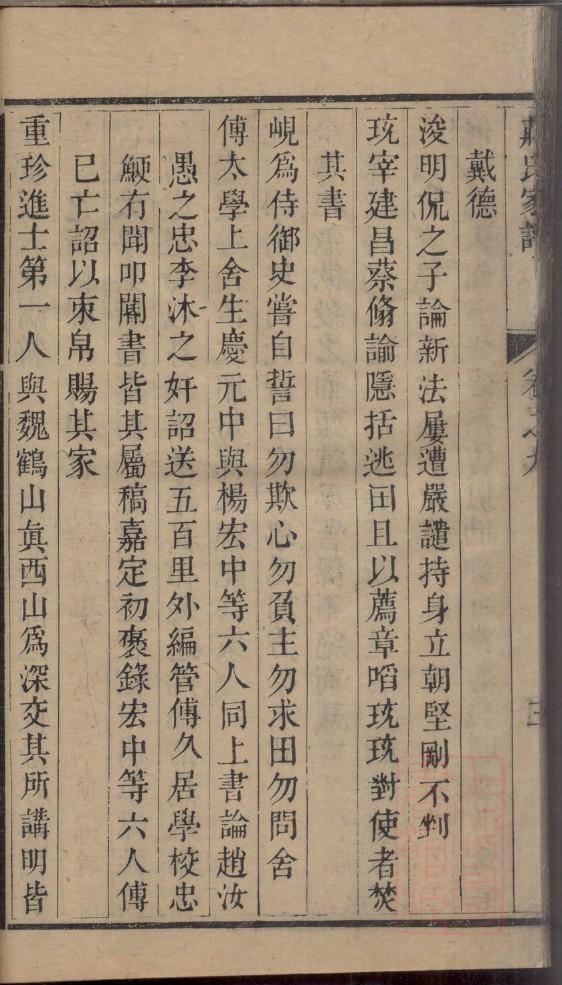 蔣氏家譜 卷之九 三
戴德
浚明侃之子論新法屢遭嚴譴持身立朝堅剛不剉
珫宰建昌蔡脩諭隱括逃田且以薦章啗珫珫對使者焚
其書
峴爲侍御史嘗自誓曰勿欺心勿負主勿求田勿問舍
傅太學上舍生慶元中與楊宏中等六人同上書論趙汝
愚之忠李沐之奸詔送五百里外編管傅久居學校忠
鯁有聞叩閽書皆其屬稿嘉定初褒錄宏中等六人傅
已亡詔以束帛賜其家
重珍進士第一人與魏鶴山眞西山爲深交其所講明皆